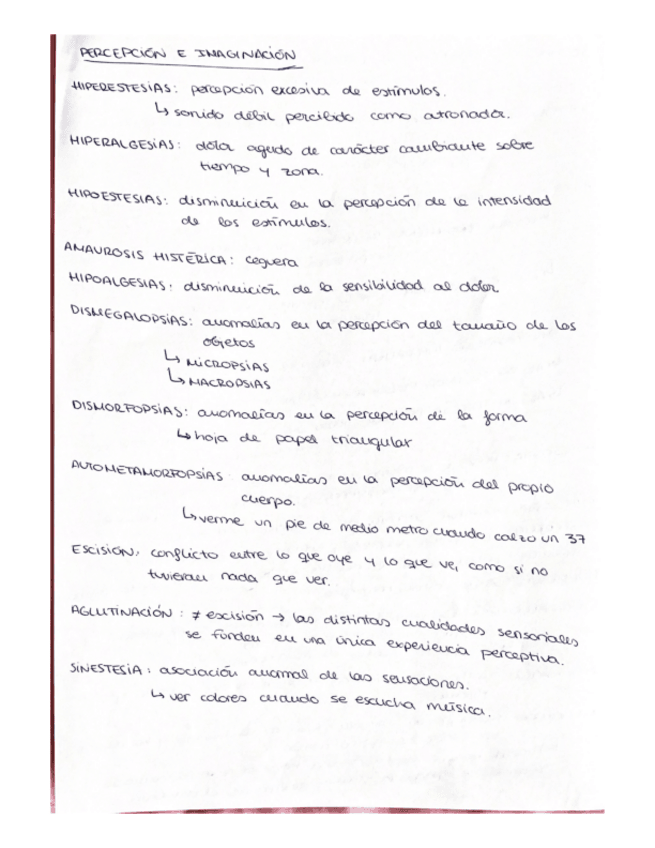 PERCEPCIÓN E IMAGINACIÓN
HIPERESTESIAS: percepción excesiva de estímulos.
↳ sonido débil percibido como atronador.
HIPERALGESIAS: dolor agudo de carácter cambiante sobre
tiempo y zona.
HIPOESTESIAS: disminuición en la percepción de la intensidad
de los estímulos.
AMAUROSIS HISTÉRICA: ceguera
HIPOALGESIAS: disminuición de la sensibilidad al dolor
DISMEGALOPSIAS: anomalías en la percepción del tamaño de los
objetos
↳ MICROPSIAS
↳ MACROPSIAS
DISMORFOPSIAS: anomalías en la percepción de la forma
↳ hoja de papel triangular
AUTOMETAMORFOPSIAS: anomalías en la percepción del propio
cuerpo.
↳ verme un pie de medio metro cuando calzo un 37
ESCISIÓN: conflicto entre lo que oye y lo que ve, como si no
tuvieran nada que ver.
AGLUTINACIÓN: ≠ escisión → las distintas cualidades sensoriales
se funden en una única experiencia perceptiva.
SINESTESIA: asociación anormal de las sensaciones.
↳ ver colores cuando se escucha música.